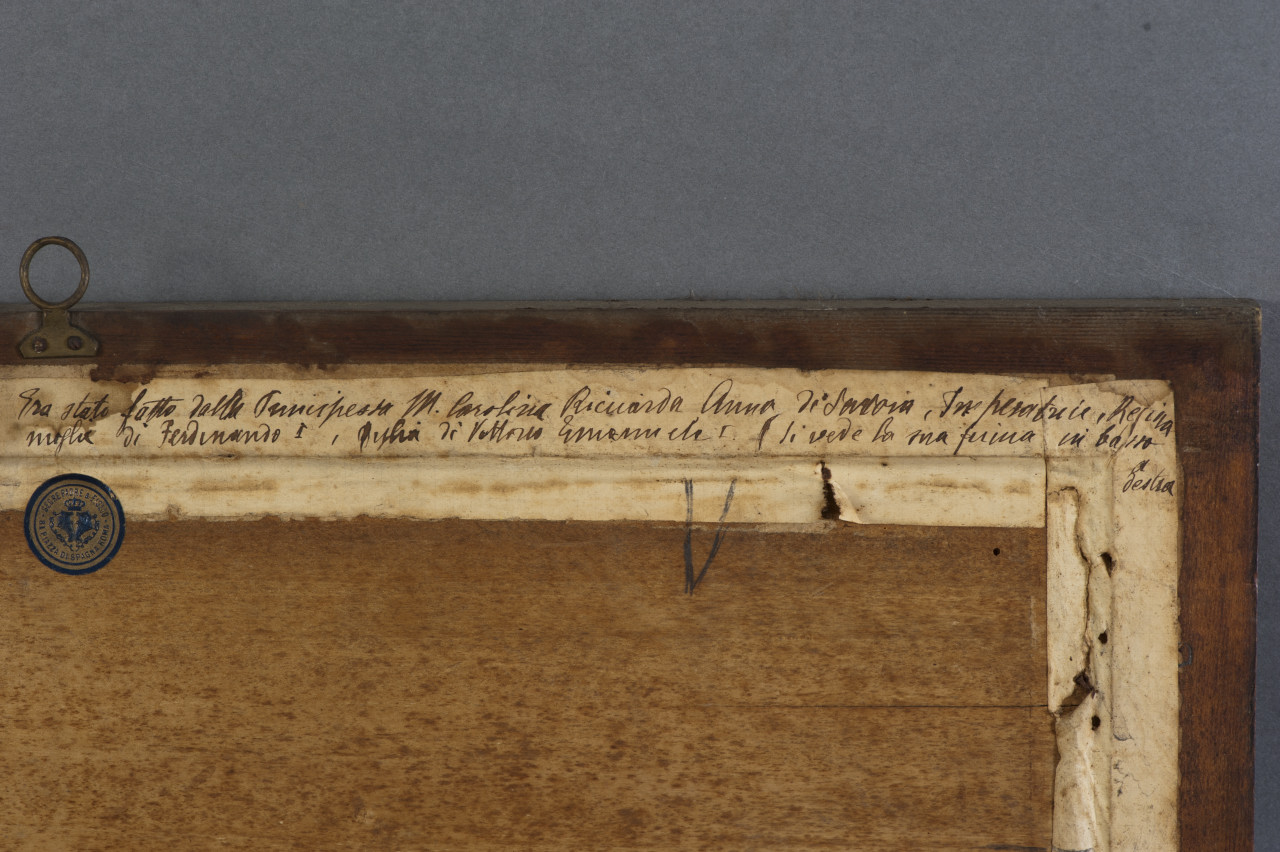 Era stato fatto dalla Principessa M. Carolina Ricciarda Anna, di Savoia, Imperatrice, Regina
moglie di Ferdinando I, figlia di Vittorio Emanuele I. Si vede la sua firma in basso
a
destra
V